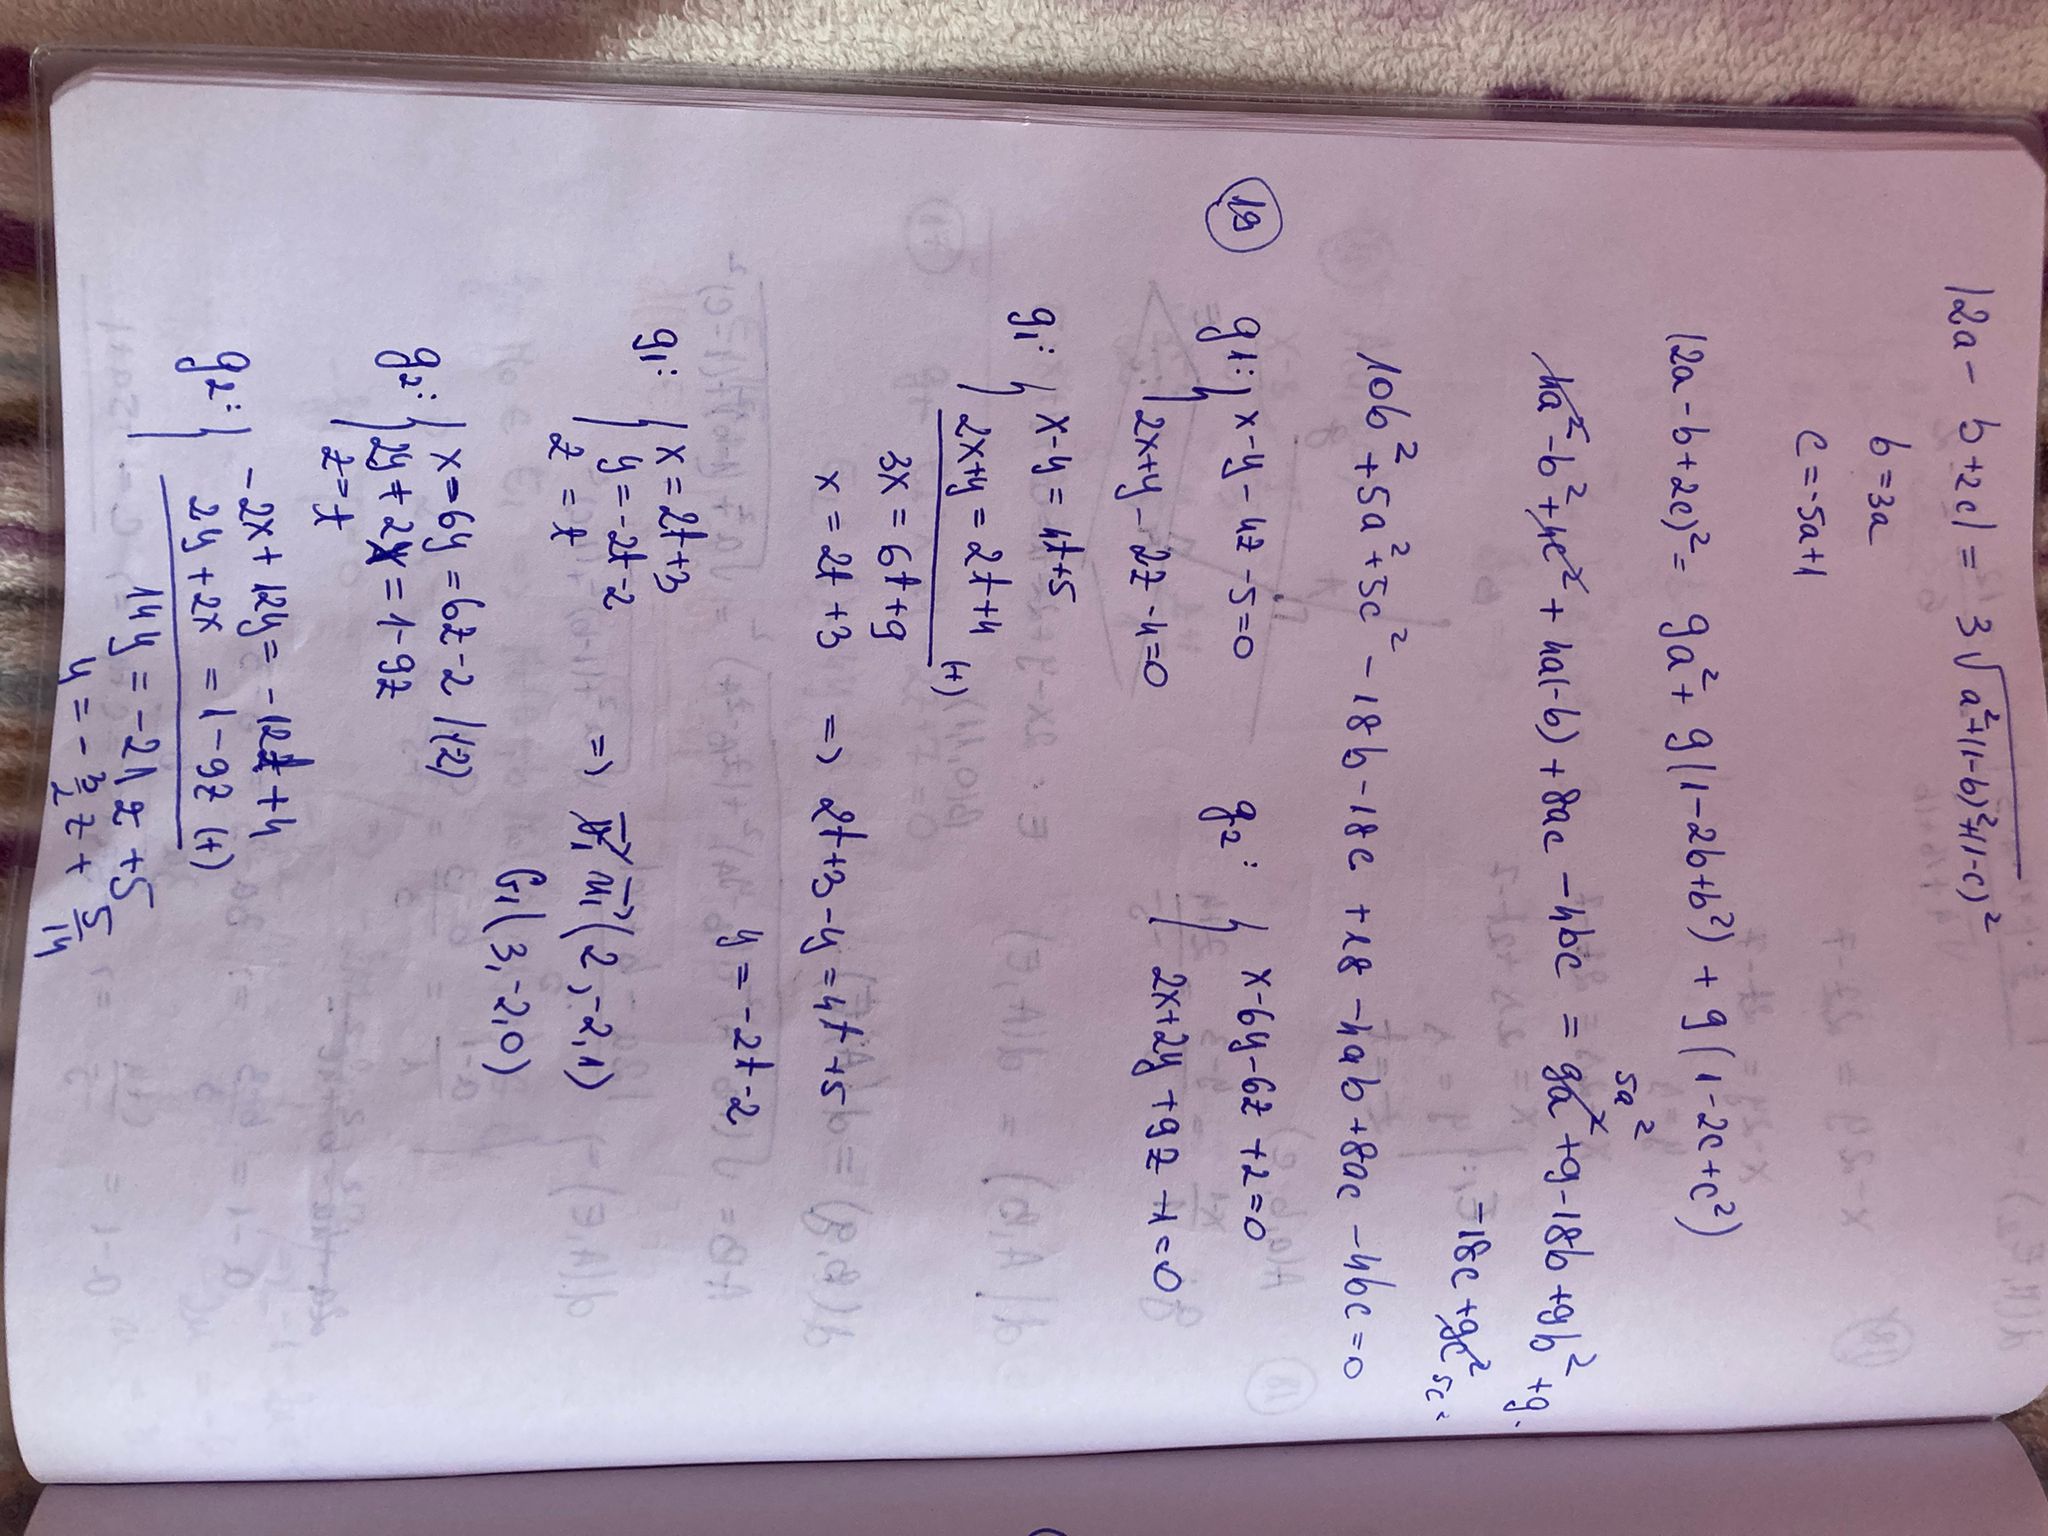 |2a - b+2c| = 3√(a²+(1-b)²+(1-c)²
b = 3a
c = -5a+1
(2a - b+2c)² = 9a² + 9(1-2b+b²) + 9(1-2c+c²)
5a²
4a² - b² + 4c² + 4a(-b) + 8ac - 4bc = 9a² + 9 - 18b + 9b² + 9
-18c + 9c² 5c²
10b² + 5a² + 5c² - 18b - 18c + 18 - 4ab + 8ac - 4bc = 0
19 g1: { x-y-4z-5=0 g2: { x-6y-6z+2=0
2x+y-2z-4=0 2x+2y+9z-1=0
g1: { x-y = 4t+5
2x+y = 2t+4 (+)
3x = 6t+9
x = 2t+3 => 2t+3-y = 4t+5
y = -2t-2
g1: { x = 2t+3
y = -2t-2 => u1 (2, -2, 1)
z = t
G1 (3, -2, 0)
g2: { x-6y = 6z-2 /·(2)
2y + 2x = 1-9z
z = t
g2: { -2x+12y = -12z+4
2y+2x = 1-9z (+)
14y = -21z+5
y = -3/2 z + 5/14